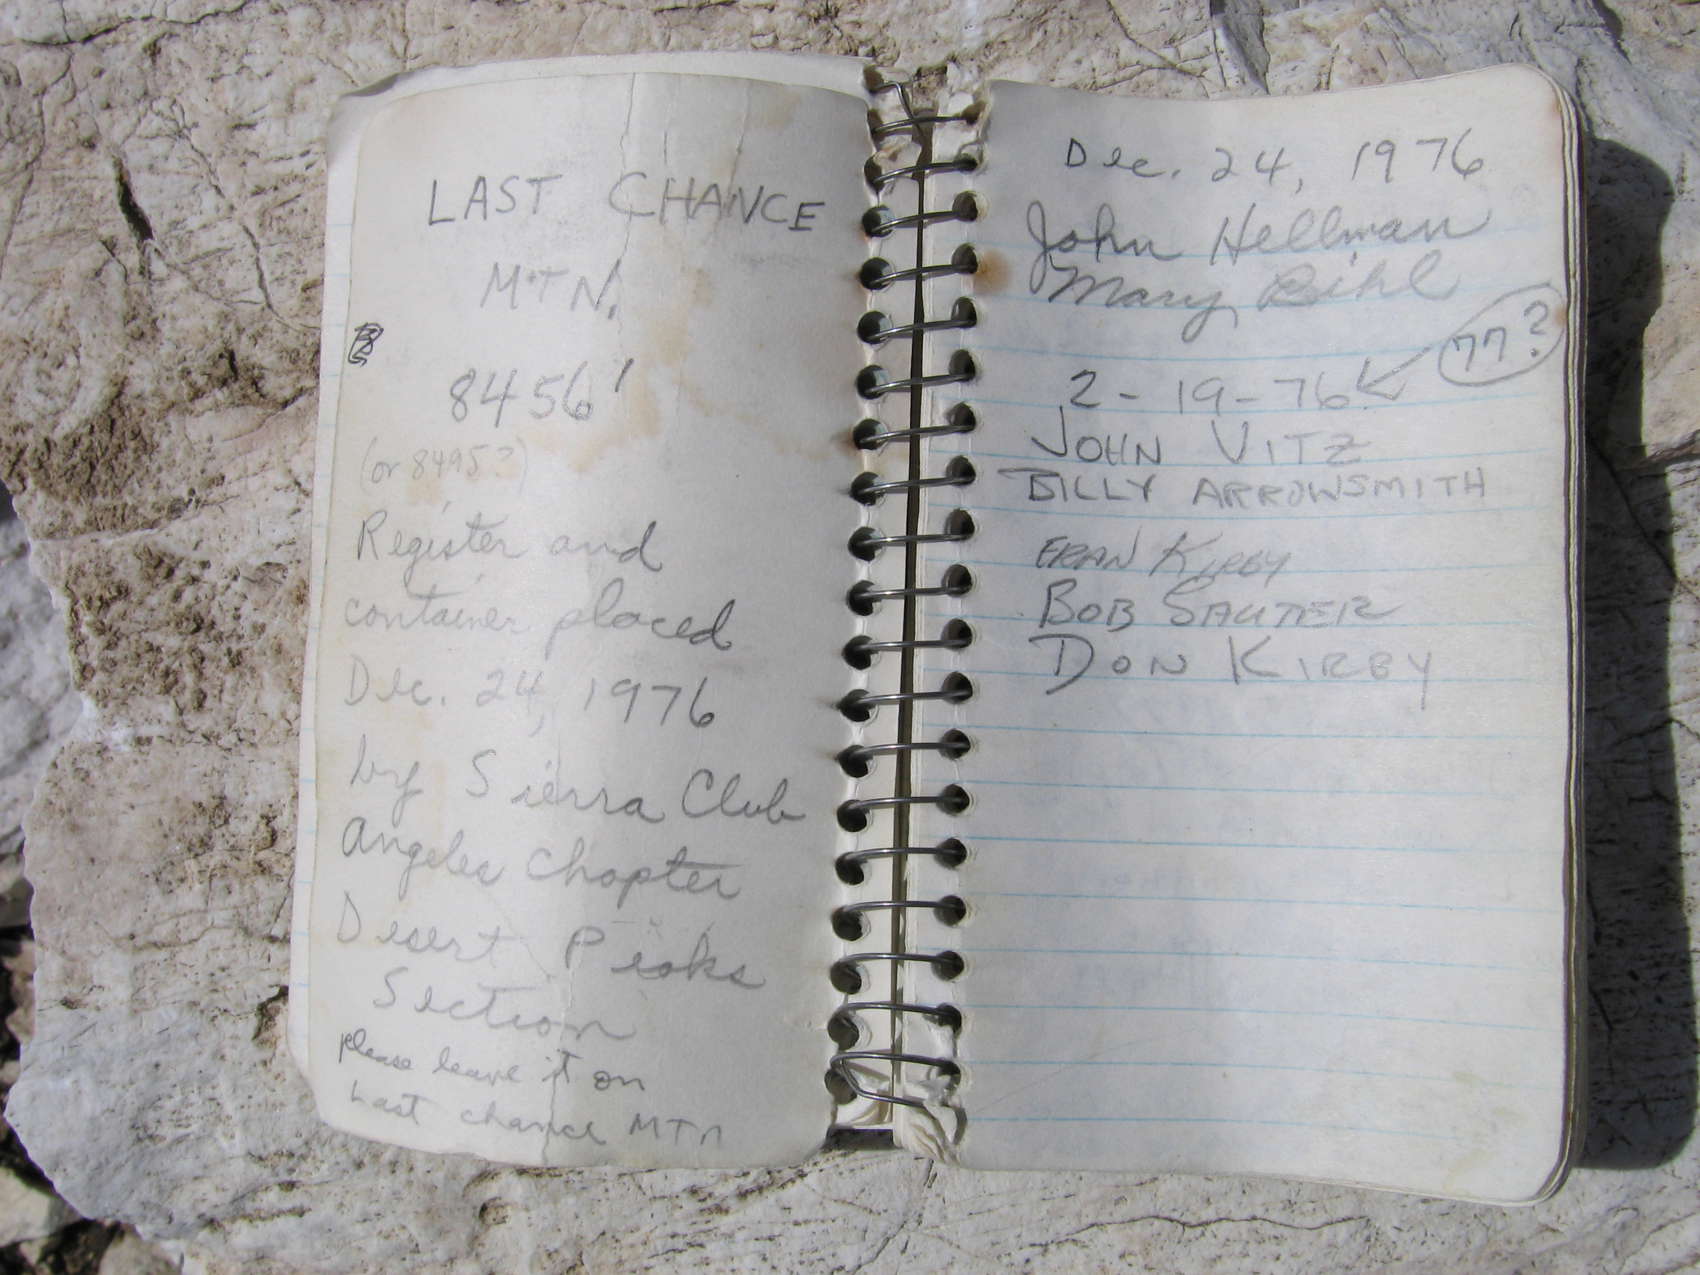 LAST CHANCE
MTN.
8456'
(or 8495?)
Register and
container placed
Dec. 24, 1976
by Sierra Club
Angeles Chapter
Desert Peaks
Section
please leave it on
Last chance MTn
Dec. 24, 1976
John Hellman
Mary Bihl
77?
2-19-76
JOHN VITZ
BILLY ARROWSMITH
FRAN KIRBY
BOB SAUTER
DON KIRBY